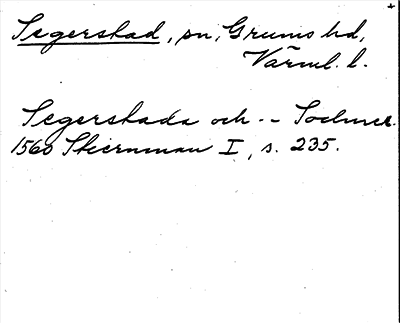 Segerstad, sn, Grums hd,
Värml. l.
Segerstada och -- Sochnar.
1560 Stiernman I, s. 235.